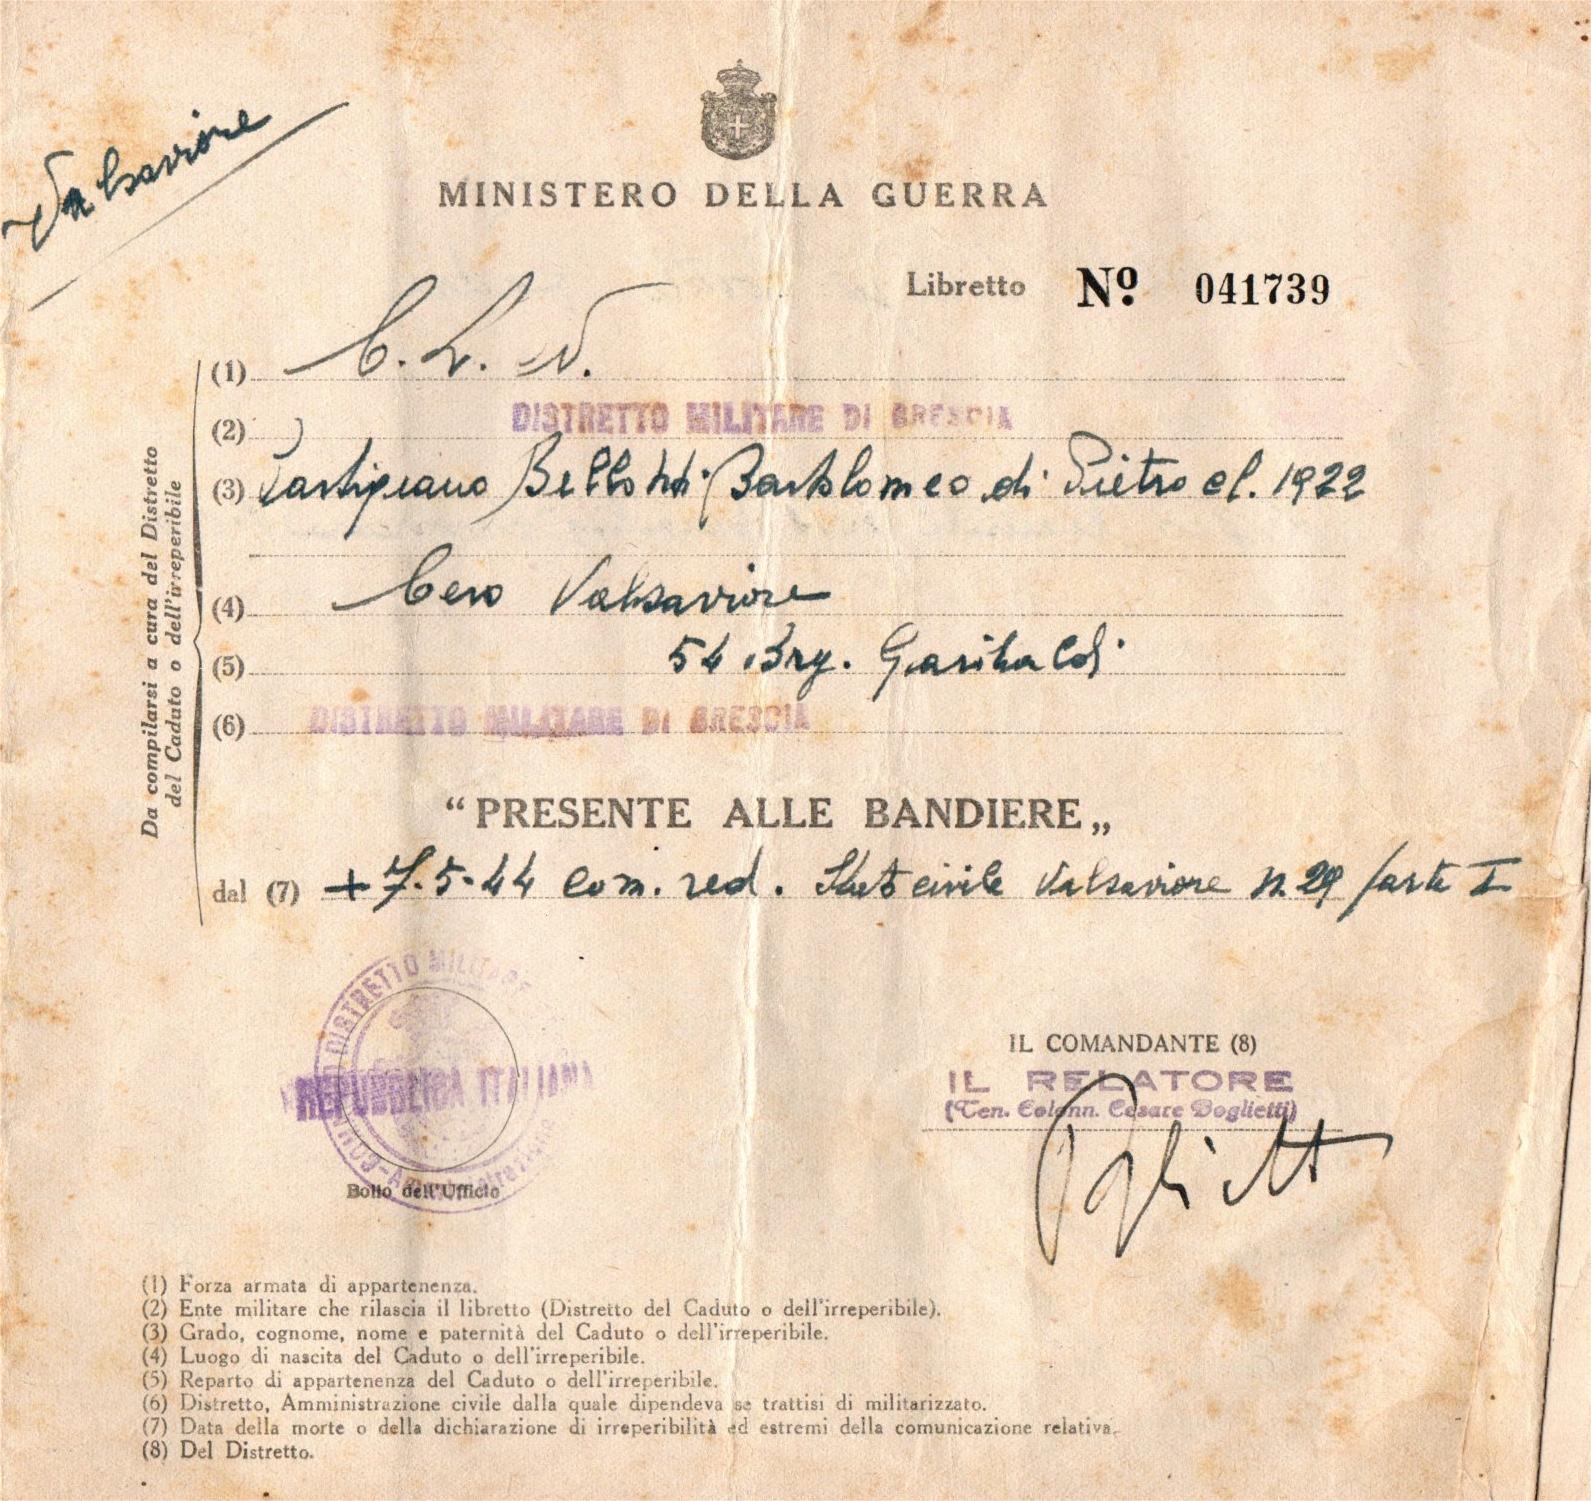 Valsaviore
MINISTERO DELLA GUERRA
Libretto Nº 041739
(1) C. L. N.
(2) DISTRETTO MILITARE DI BRESCIA
(3) Partigiano Bellotti Bartolomeo di Pietro cl. 1922
(4) Cevo Valsaviore
(5) 54 Brg. Garibaldi
(6) DISTRETTO MILITARE DI BRESCIA
Da compilarsi a cura del Distretto
del Caduto o dell'irreperibile
“PRESENTE ALLE BANDIERE„
dal (7) + 7.5.44 com. red. Stato civile Valsaviore n. 29 parte I
DISTRETTO MILITARE
REPUBBLICA ITALIANA
Bollo dell'Ufficio
IL COMANDANTE (8)
IL RELATORE
(Ten. Colonn. Cesare Boglietti)
(1) Forza armata di appartenenza.
(2) Ente militare che rilascia il libretto (Distretto del Caduto o dell'irreperibile).
(3) Grado, cognome, nome e paternità del Caduto o dell'irreperibile.
(4) Luogo di nascita del Caduto o dell'irreperibile.
(5) Reparto di appartenenza del Caduto o dell'irreperibile.
(6) Distretto, Amministrazione civile dalla quale dipendeva se trattisi di militarizzato.
(7) Data della morte o della dichiarazione di irreperibilità ed estremi della comunicazione relativa.
(8) Del Distretto.